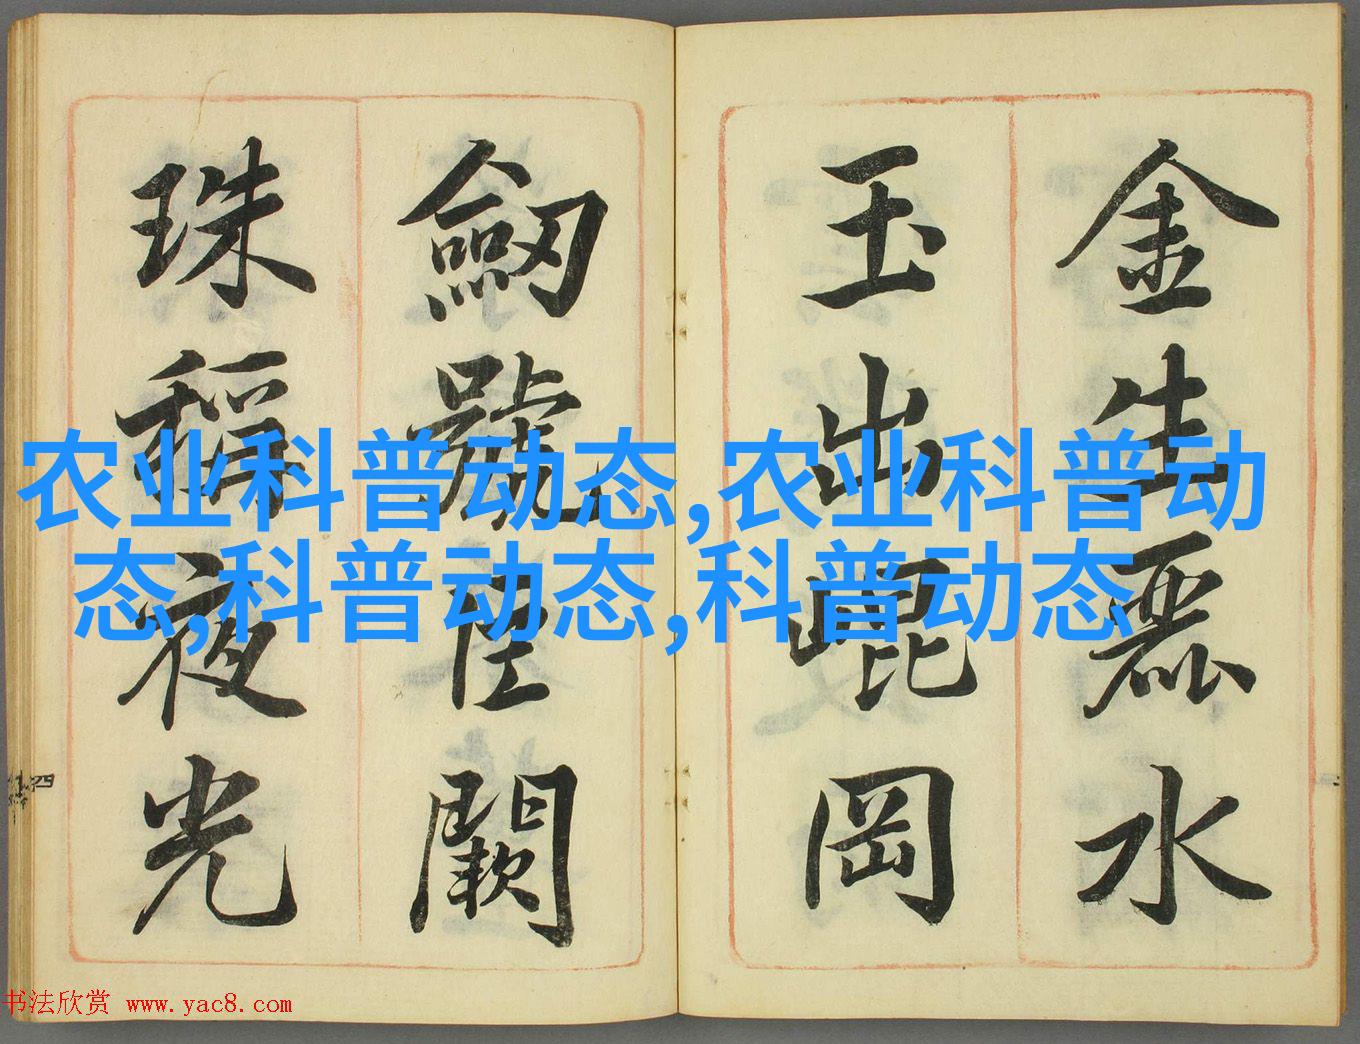 金生麗水
玉出崐岡
劒號巨闕
珠稱夜光
农业科普动态,农业科普动
态,科普动态,科普动态
四
书法欣赏 www.yac8.com